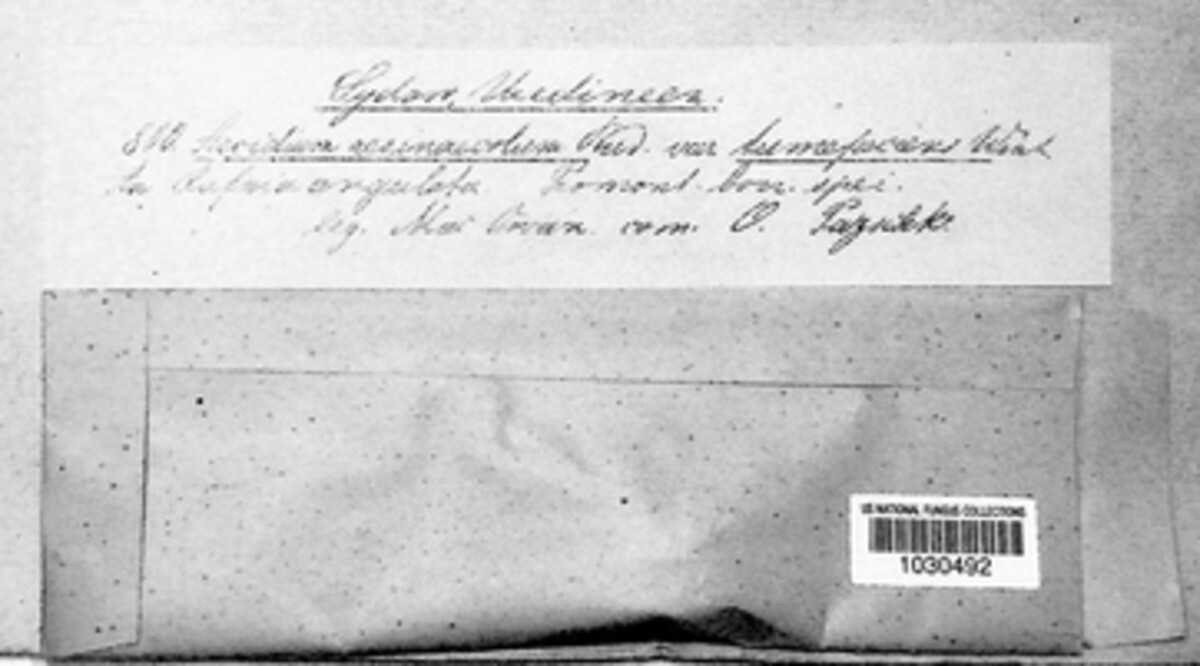 Sydow, Uredineen.
Aecidium resinaecolum Rud. var tumefaciens Wint
In Rafnia angulata. Promont. bon. spei.
leg. Mac Owan. com. O. Pazschke.
US NATIONAL FUNGUS COLLECTIONS
1030492